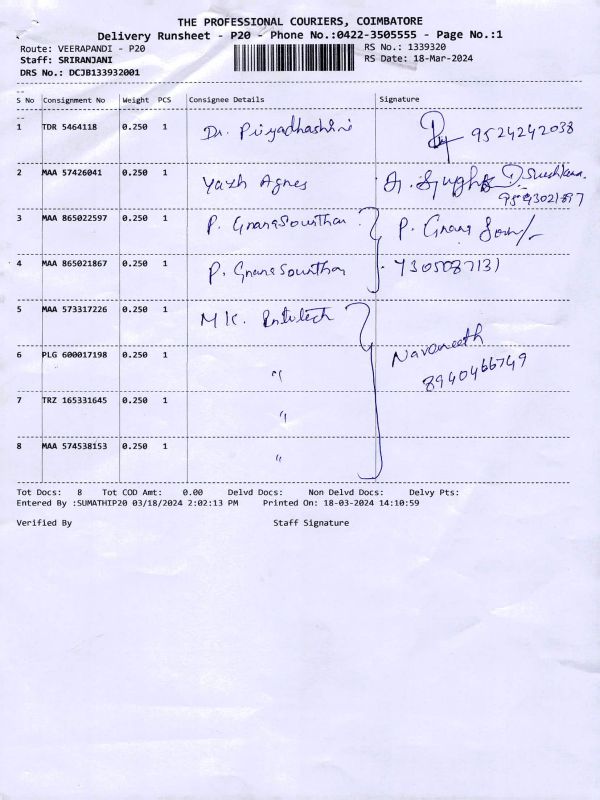 THE PROFESSIONAL COURIERS, COIMBATORE
Delivery Runsheet - P20 - Phone No.:0422-3505555 - Page No.:1
Route: VEERAPANDI - P20 RS No.: 1339320
Staff: SRIRANJANI RS Date: 18-Mar-2024
DRS No.: DCJB133932001
S No Consignment No Weight PCS Consignee Details Signature
1 TDR 5464118 0.250 1 Dr. Priyadhashini 9524242038
2 MAA 57426041 0.250 1 Yazh Agnes
3 MAA 865022597 0.250 1 P. GnanaSounthar P. Gnana
4 MAA 865021867 0.250 1 P. GnanaSounthar 7305087131
5 MAA 573317226 0.250 1 M K.
6 PLG 600017198 0.250 1 " Navaneeth
8940466749
7 TRZ 165331645 0.250 1 "
8 MAA 574538153 0.250 1 "
Tot Docs: 8 Tot COD Amt: 0.00 Delvd Docs: Non Delvd Docs: Delvy Pts:
Entered By :SUMATHIP20 03/18/2024 2:02:13 PM Printed On: 18-03-2024 14:10:59
Verified By Staff Signature